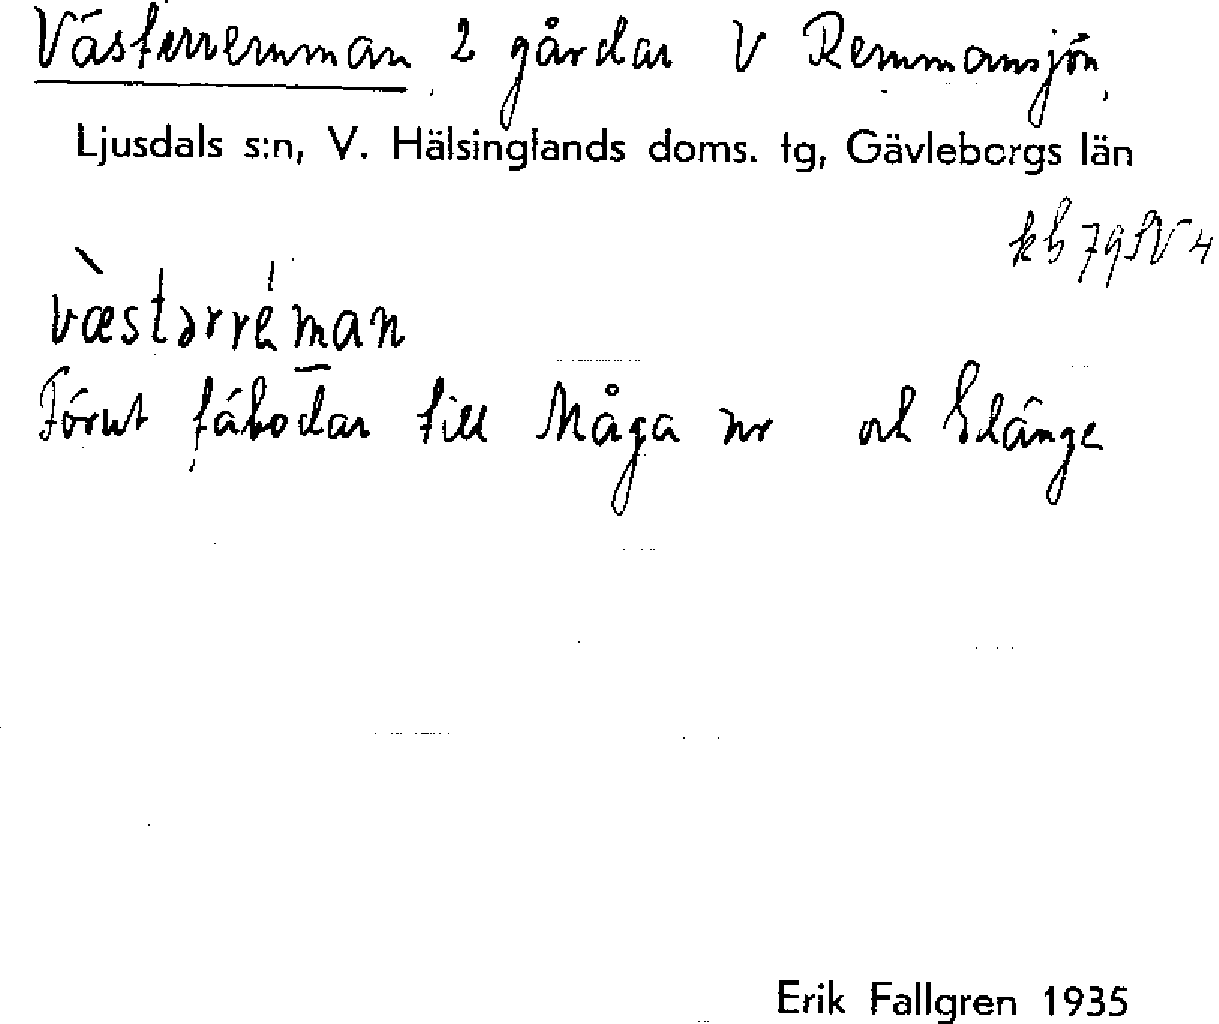 Västerremman 2 gårdar V Remmansjön
Ljusdals s:n, V. Hälsinglands doms. tg, Gävleborgs län
kb 79 SV 4
væstərréman
Förut fäbodar till Måga nr och Elänge
Erik Fallgren 1935